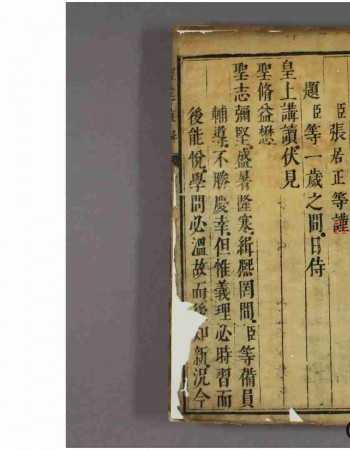 臣張居正等謹
題臣等一歲之間日侍
皇上講讀伏見
聖脩益懋
聖志彌堅盛暑隆寒緝熙罔間臣等備員
輔導不勝慶幸但惟義理必時習而
後能悅學問必溫故而後知新況今